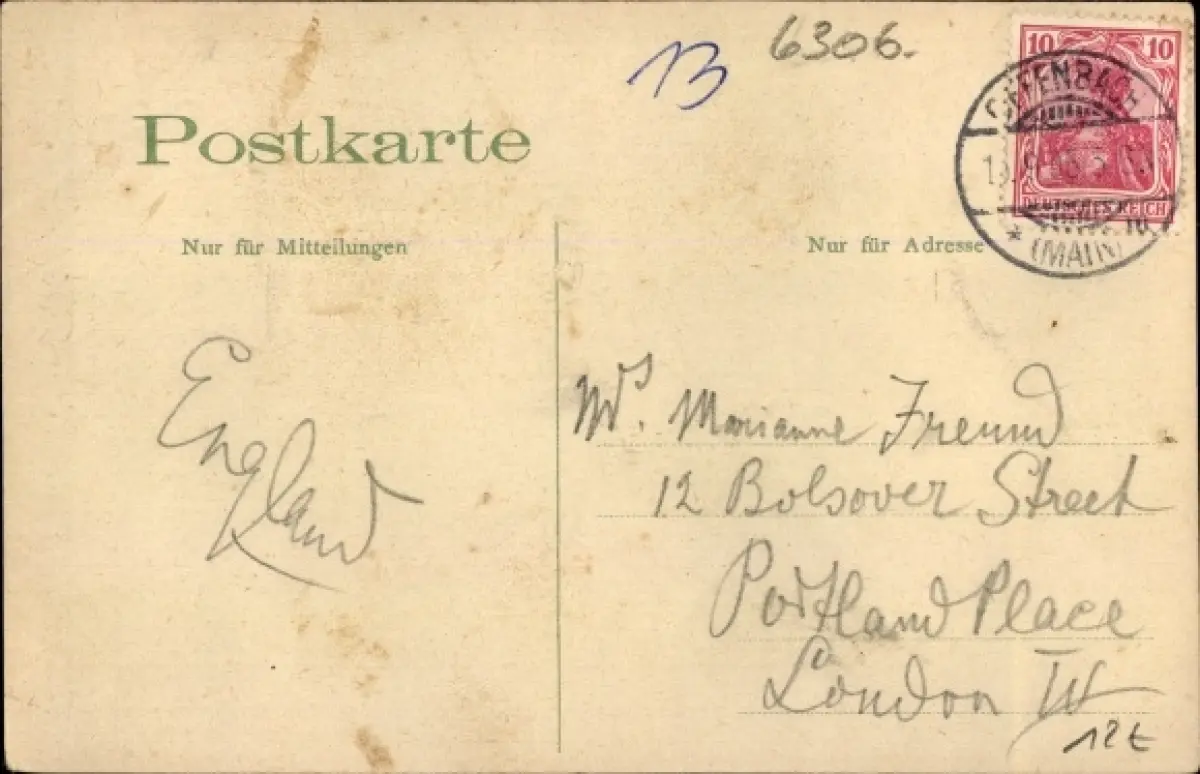 6306.
13
10 10
OFFENBACH
DEUTSCHES REICH
* (MAIN)
Postkarte
Nur für Mitteilungen
Nur für Adresse
England
Mrs. Marianne Freund
12 Bolsover Street
Portland Place
London W
12 €